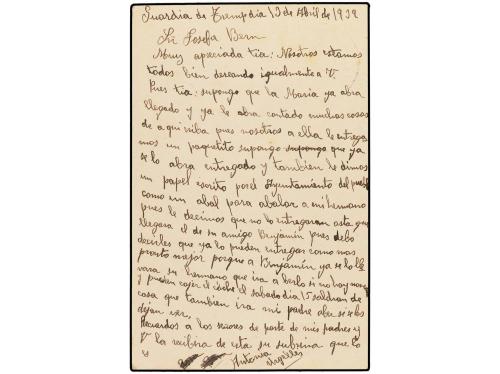 Guardia de Tremp dia 13 de Abril de 1939
Sr Josefa Bern
Muy apreciada tia: Nosotros estamos
todos bien deseando igualmente a V.
Pues tia: supongo que la Maria ya abra
llegado y ya le abra contado muchas cosas
de aqui riba pues nosotros a ella le entrega
mos un paquetito supongo supongo que ya
se lo abra entregado y tambien le dimos
un papel escrito por el Ayuntamiento del puebl
como un abal para abalar a mi hermano
pues le decimos que no lo entregaran asta que
llegara el de su amigo Benjamin pues debo
decirles que ya lo pueden entregar como mas
pronto mejor porque a Benjamin ya se lo lle
vara su hermano que ira a berlo si no hay nove
y pueden cojer el el sabado dia 15 saldran de
casa que tambien ira mi padre aber se les
dejan ver,
Recuerdos a los señores de parte de mis padres y
V la recibira de esta su subrina que lo
es Antonia